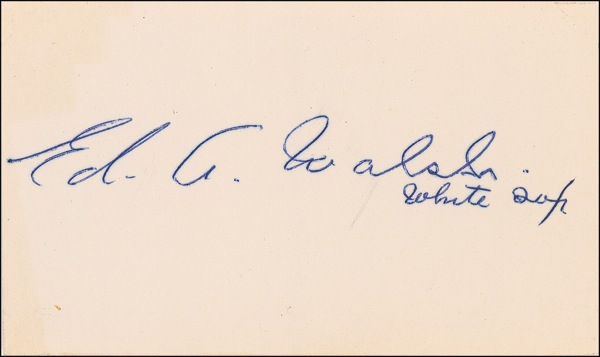 Ed. A. Walsh.
White Sox